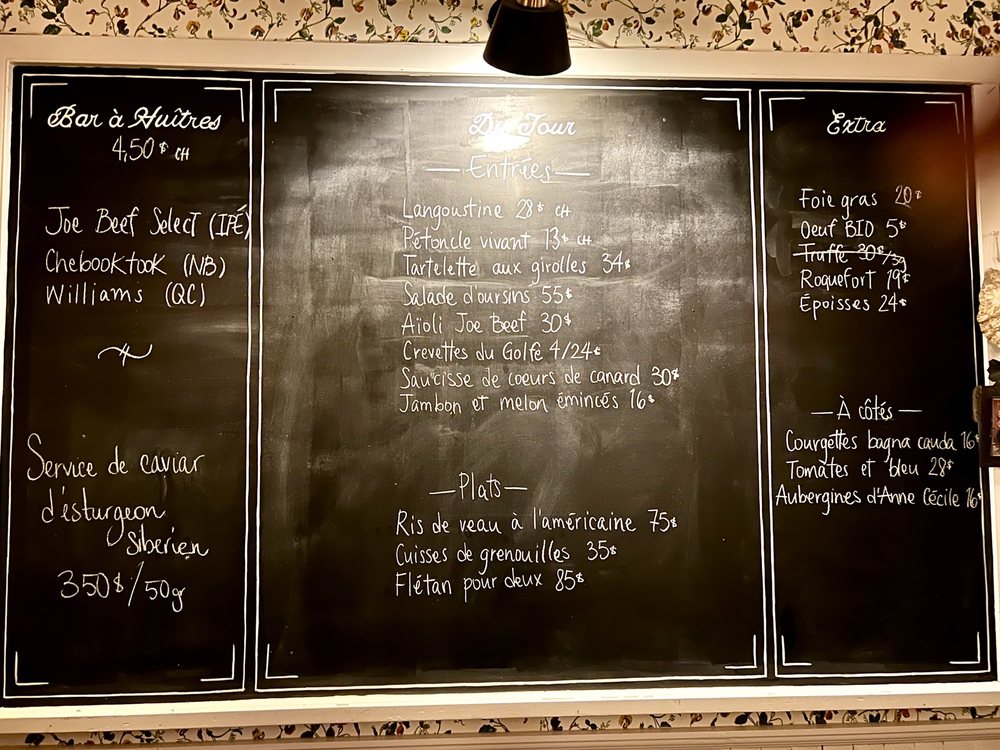 Bar à Huîtres
4,50$ CH
Joe Beef Select (IPÉ)
Chebooktook (NB)
Williams (QC)
Service de caviar
d'ésturgeon
Sibérien
350$/50g
Du Jour
—Entrées—
Langoustine 28$ CH
Pétoncle vivant 13$ CH
Tartelette aux girolles 34$
Salade d'oursins 55$
Aïoli Joe Beef 30$
Crevettes du Golfe 4/24$
Saucisse de coeurs de canard 30$
Jambon et melon émincés 16$
—Plats—
Ris de veau à l'américaine 75$
Cuisses de grenouilles 35$
Flétan pour deux 85$
Extra
Foie gras 20$
Oeuf BIO 5$
Truffe 30$/5g
Roquefort 19$
Époisses 24$
—À côtés—
Courgettes bagna cauda 16$
Tomates et bleu 28$
Aubergines d'Anne Cécile 16$